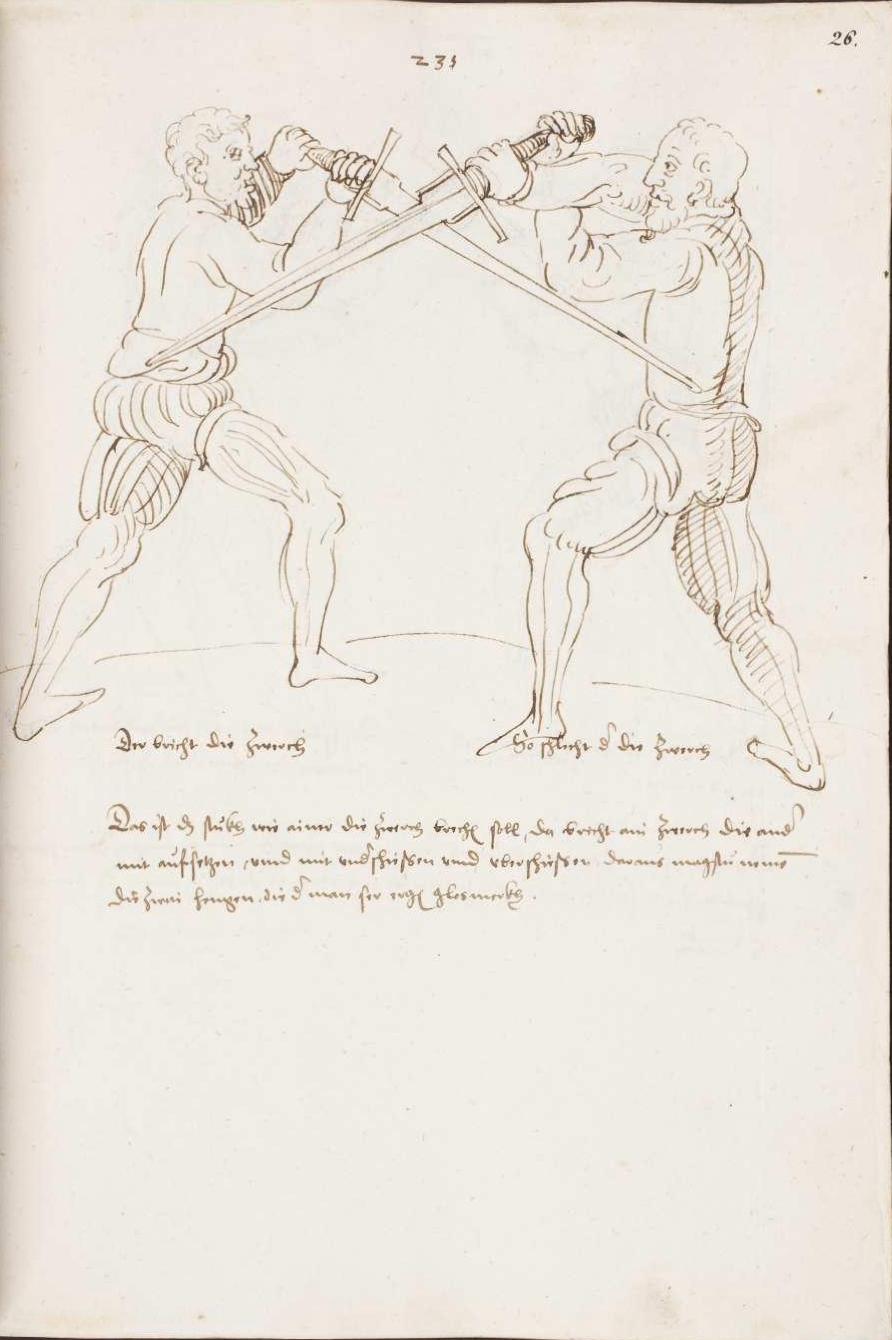 26.
231
Der bricht die zwerch
So schlecht d' die zwerch
Das ist dz stukh wie ainer die zwerch brechen soll, da bricht ain zwerch die and'
mit aufsetzen, vnnd mit vnd'schiessen vnnd vberschiessen daraus magstu neme͞
die zwai hengen, die d' man ser